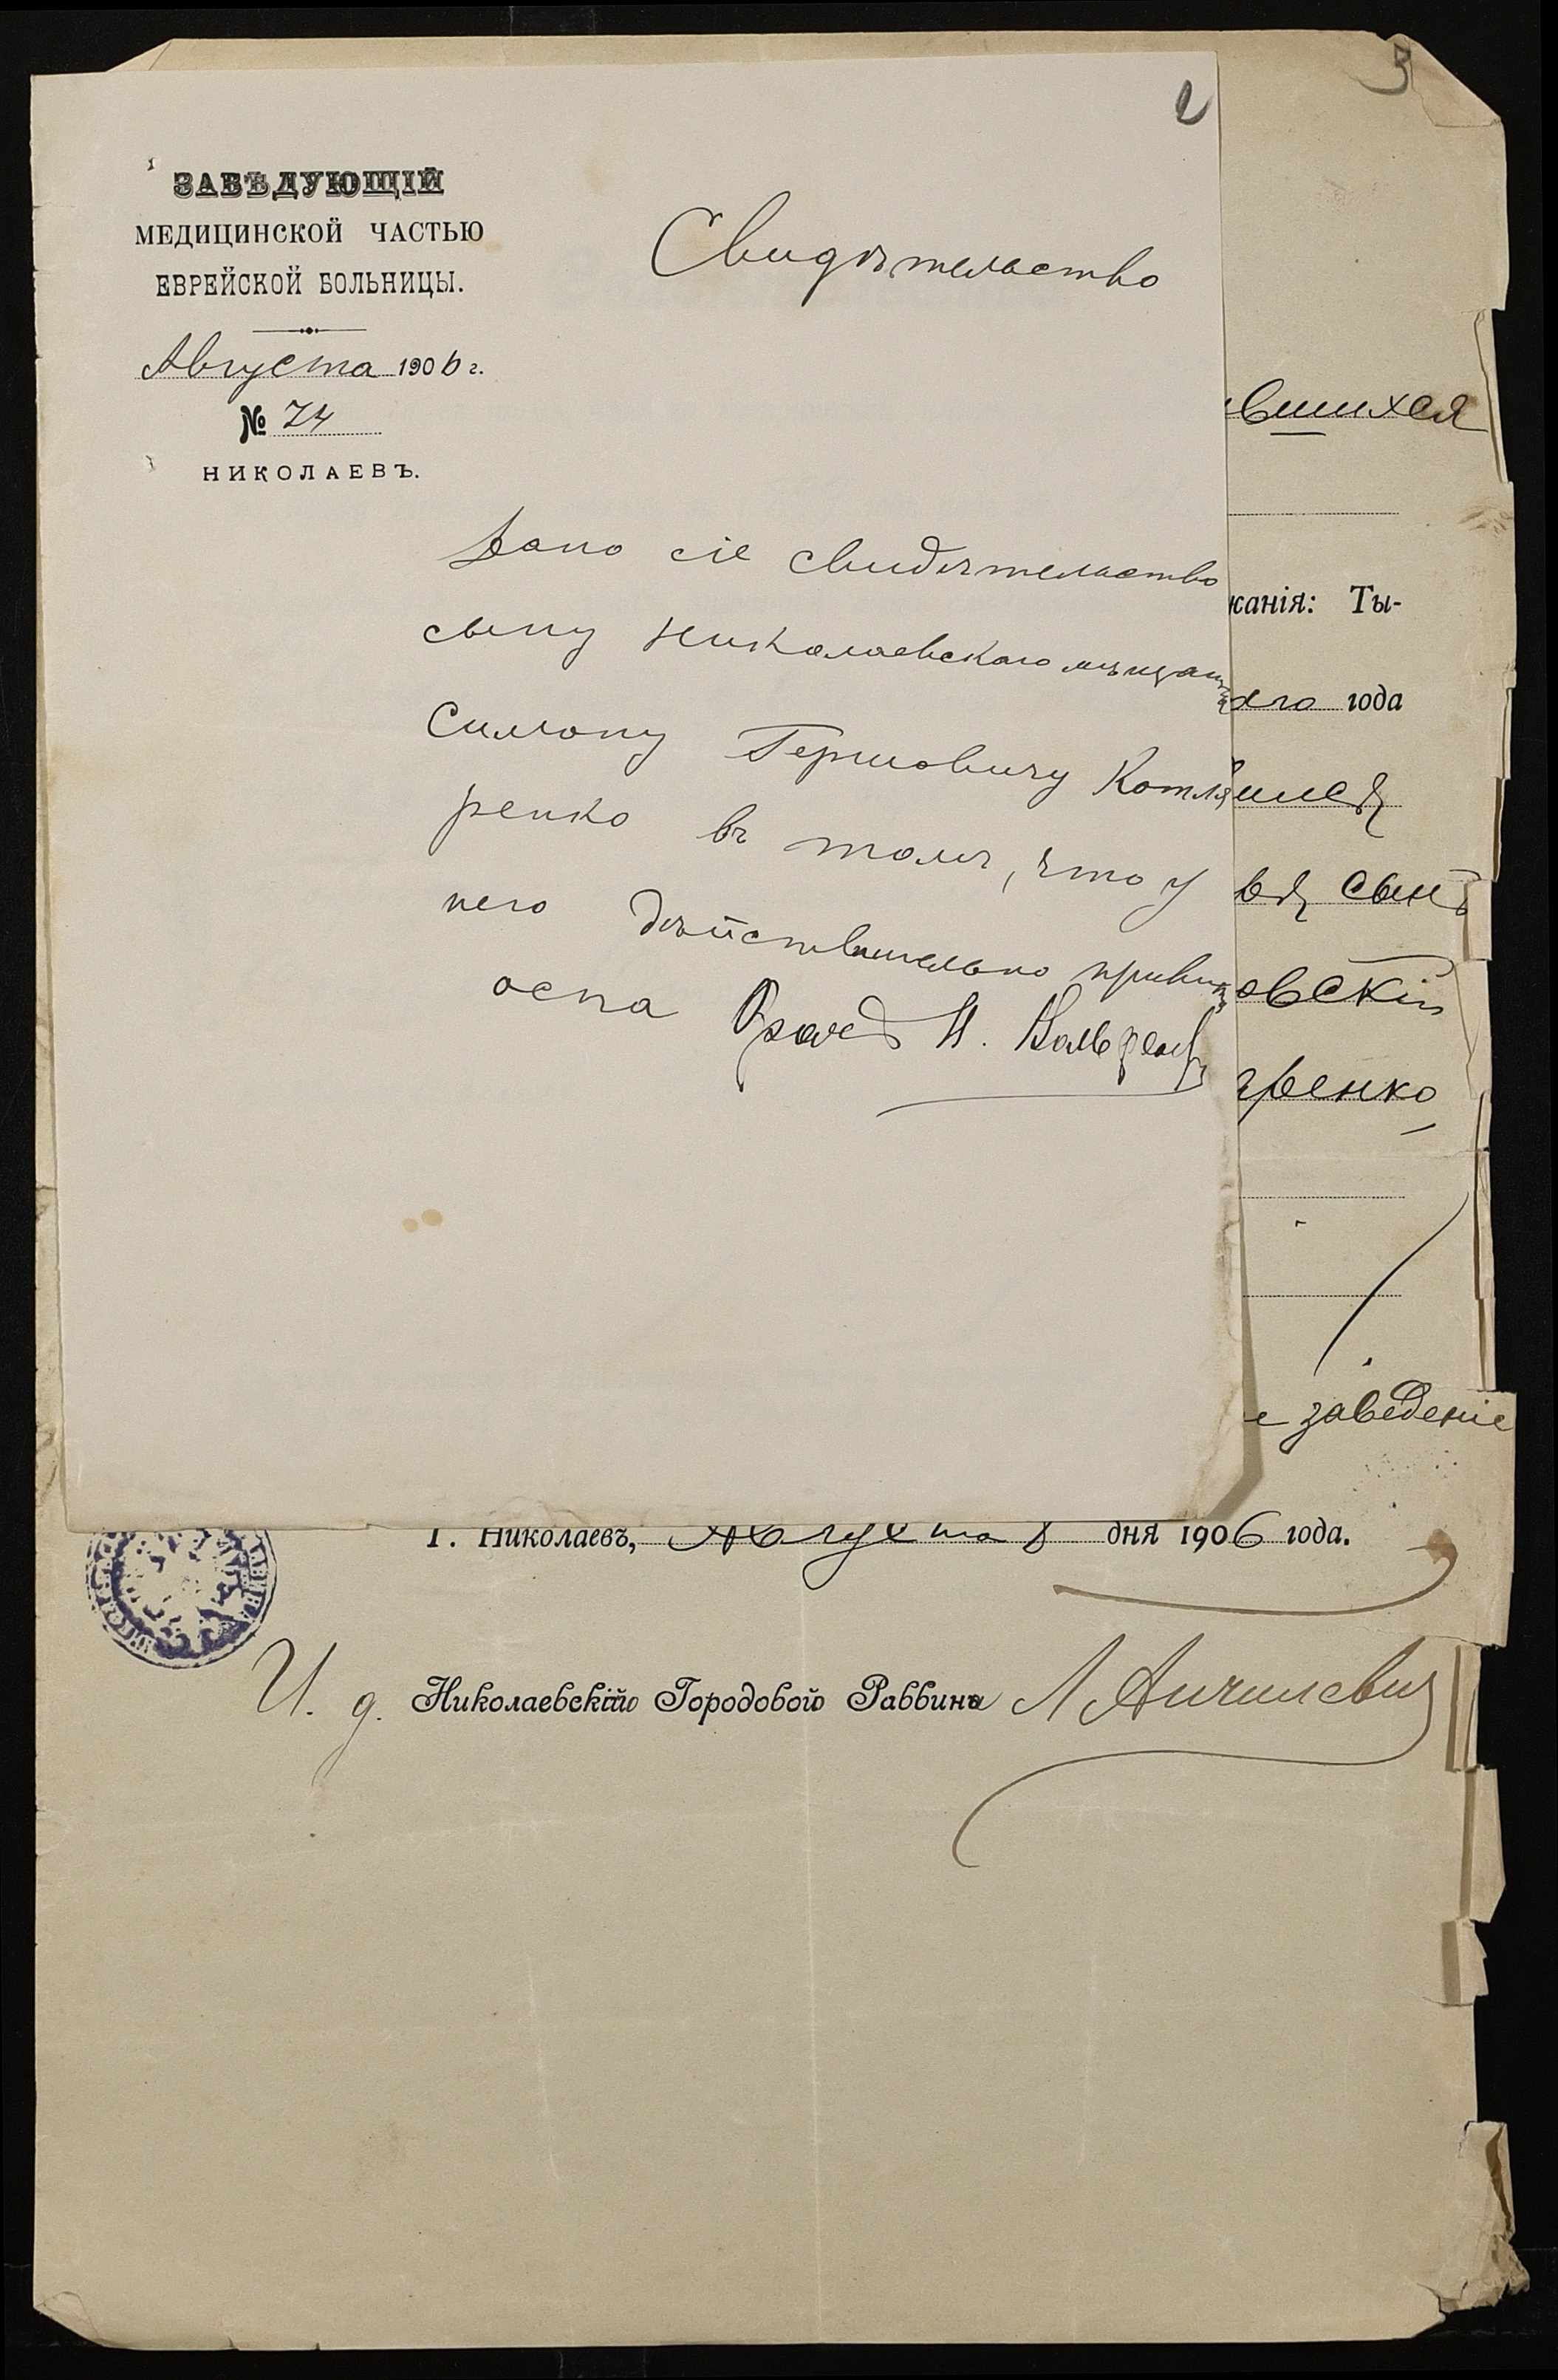 2
3
ЗАВѢДУЮЩІЙ
МЕДИЦИНСКОЙ ЧАСТЬЮ
ЕВРЕЙСКОЙ БОЛЬНИЦЫ.
Августа 1906 г.
№ 74
НИКОЛАЕВЪ.
Свидѣтельство
Дано сіе свидѣтельство
сыну Николаевскаго мѣщанина
Симону Гершовичу Котля
ренко въ томъ, что у
него дѣйствительно привита
оспа Врачъ И.
вшихся
канія: Ты-
года
сынъ
овскій
ренко
е заведеніе
Г. Николаевъ, Августа 8 дня 1906 года.
И. д. Николаевскій Городовой Раввинъ